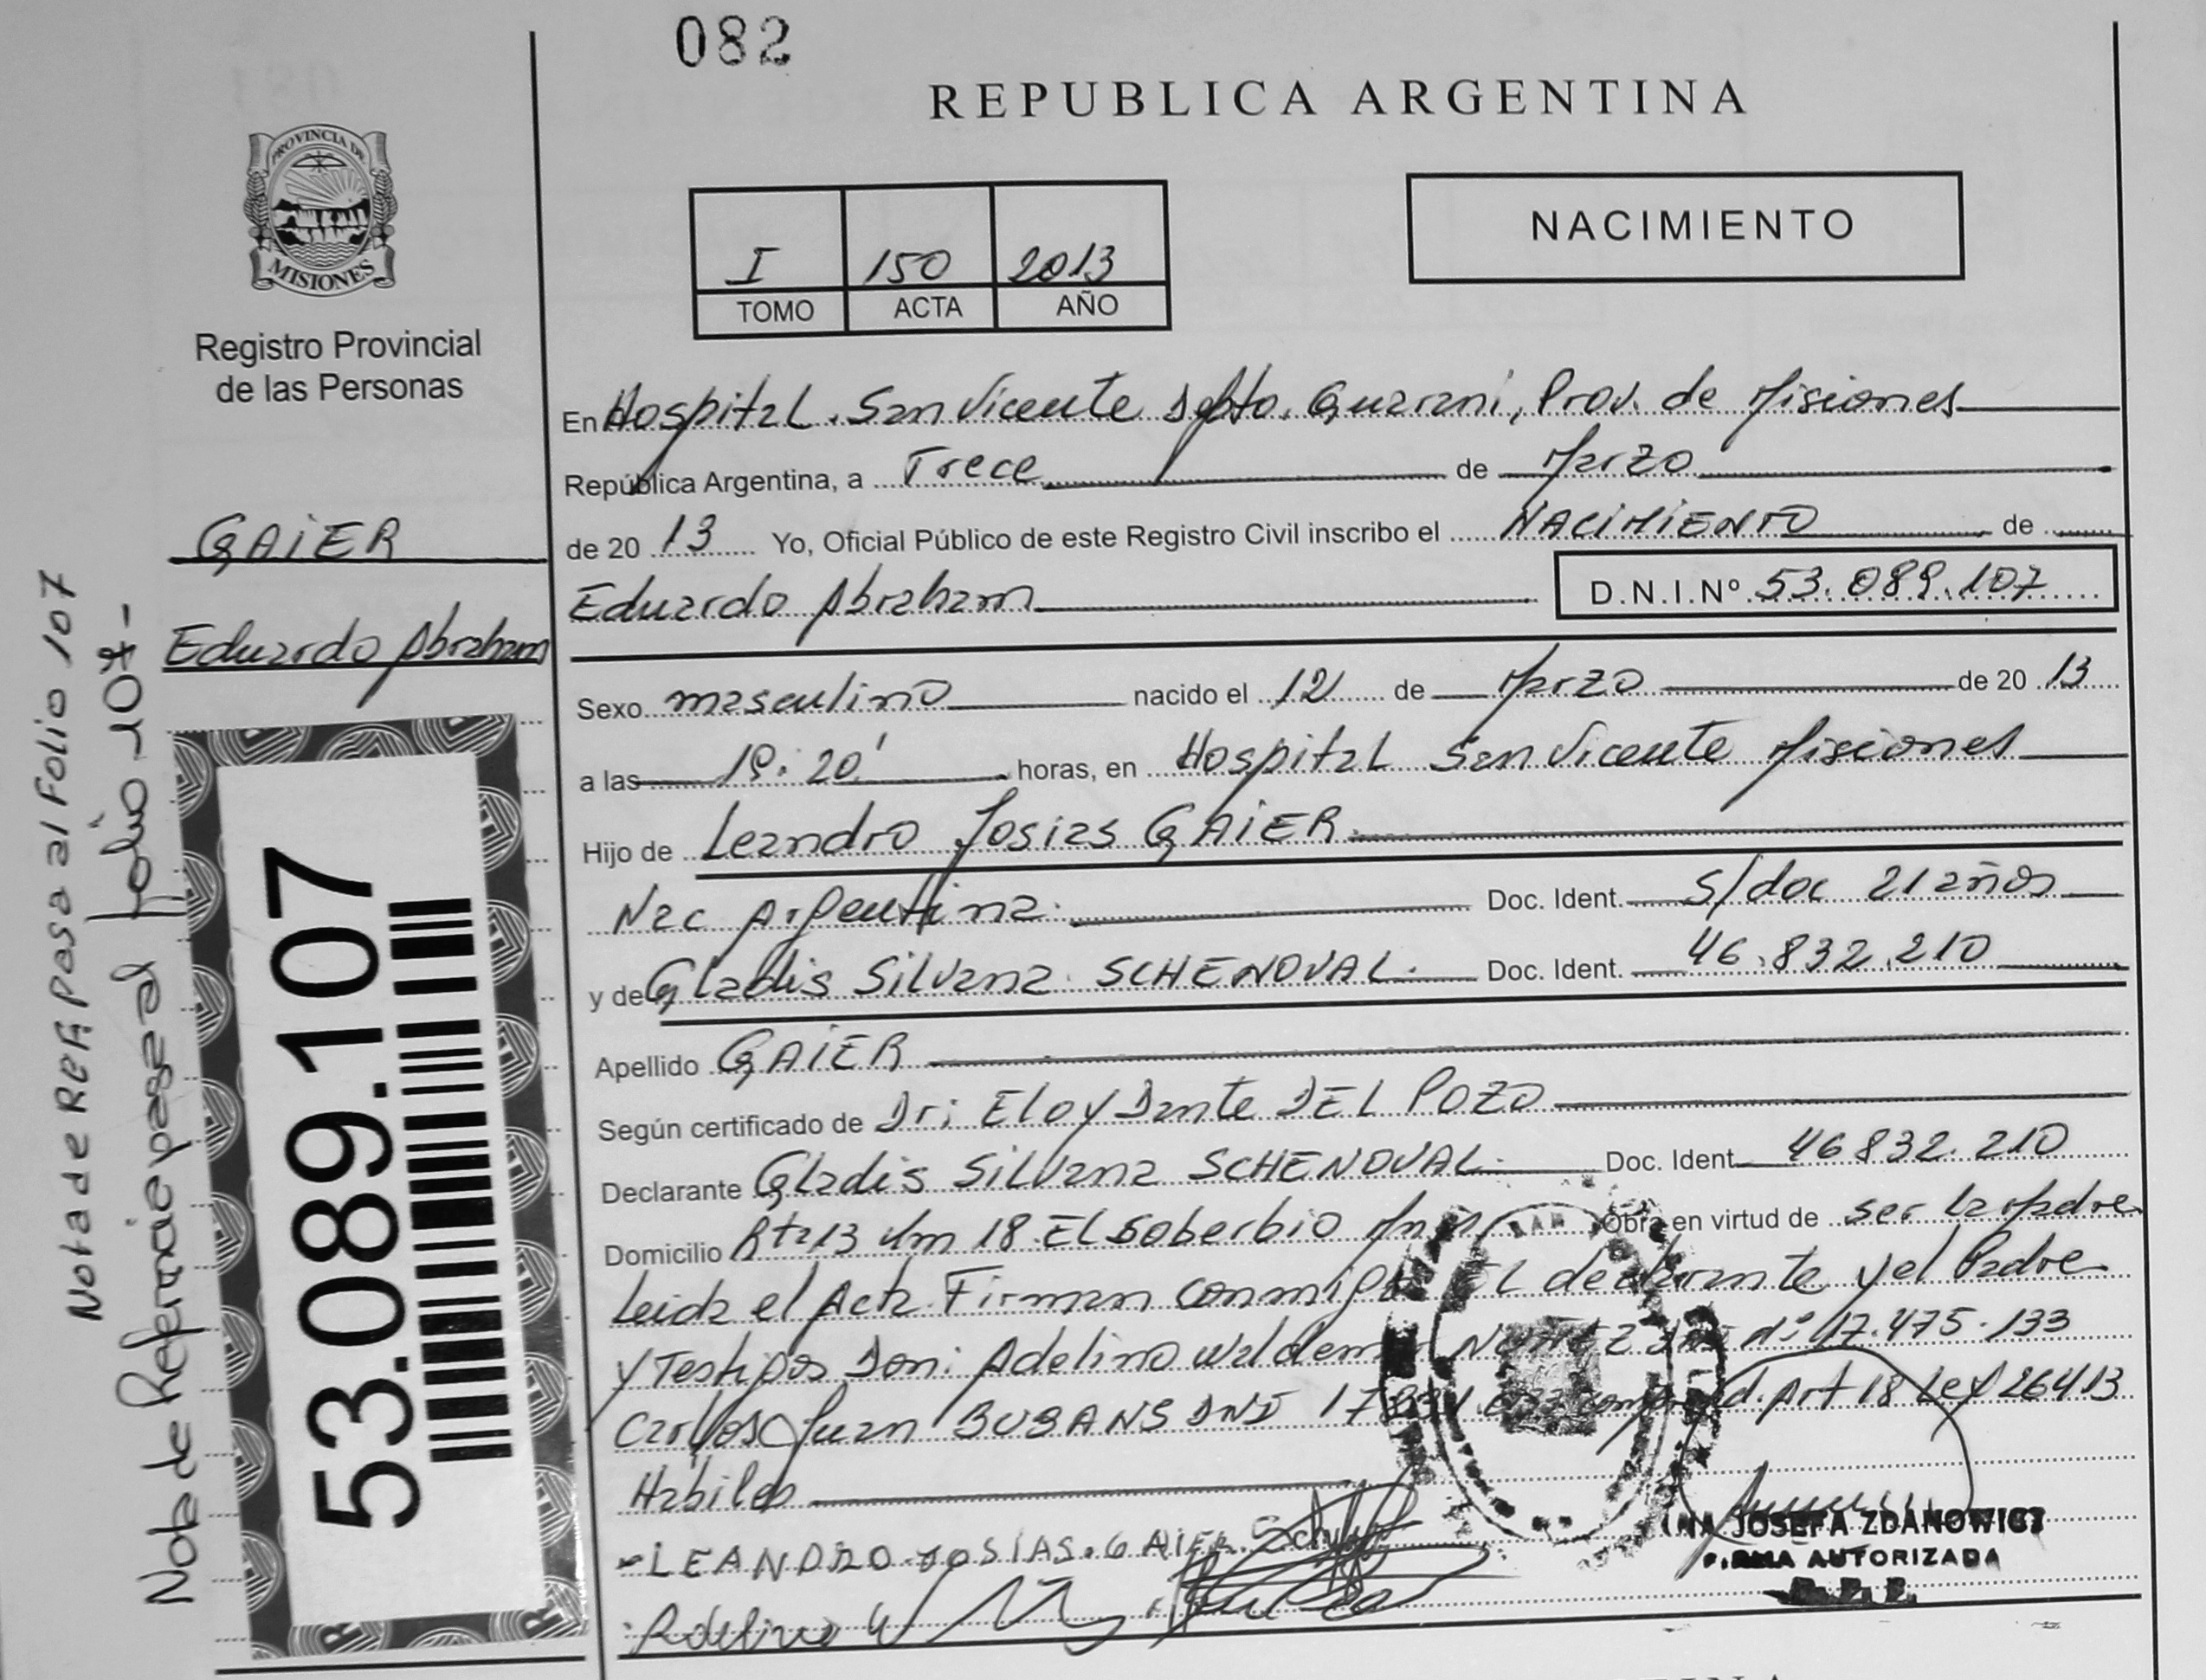 082
REPUBLICA ARGENTINA
PROVINCIA DE
MISIONES
Registro Provincial
de las Personas
I 150 2013
TOMO ACTA AÑO
NACIMIENTO
En Hospital San Vicente Dpto. Guarani, Prov. de Misiones
República Argentina, a Trece de Marzo
de 20 13 Yo, Oficial Público de este Registro Civil inscribo el NACIMIENTO de
Eduardo Abraham D.N.I.Nº 53.089.107
GAIER
Eduardo Abraham
Sexo masculino nacido el 12 de Marzo de 20 13
a las 19:20' horas, en Hospital San Vicente Misiones
Hijo de Leandro Josias GAIER
Nac Argentina. Doc. Ident. S/doc 21 años
y de Gladis Silvana SCHENOVAL. Doc. Ident. 46.832.210
Apellido GAIER
Según certificado de Dr: Eloy Dante DEL POZO
Declarante Gladis Silvana SCHENOVAL Doc. Ident. 46832.210
Domicilio Rta 13 Km 18 El Soberbio Obra en virtud de ser la Madre
Leida el Acta Firman conmigo EL declarante y el Padre
y Testigos Don: Adelino nº 17.475.133
Carlos Juan BUBANS DNI Art 18 Ley 26413
Habiles
LEANDRO JOSIAS GAIER
Adelino
JOSEFA ZDANOWICZ
FIRMA AUTORIZADA
53.089.107
Nota de REF pasa al Folio 107
Nota de Referencia pasa al folio 107-